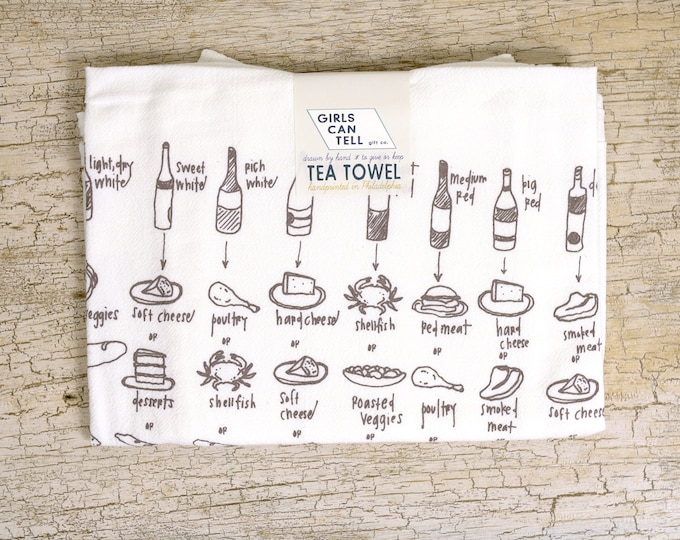 GIRLS
CAN
TELL
gift co.
drawn by hand to give or keep
TEA TOWEL
handprinted in Philadelphia
light, dry
white
sweet
white
rich
white
Medium
Red
big
Red
veggies
soft cheese
poultry
hard cheese
shellfish
Red meat
hard
cheese
smoked
meat
or
or
or
or
or
or
or
desserts
shellfish
soft
cheese
Roasted
Veggies
poultry
smoked
meat
soft cheese
or
or
or
or